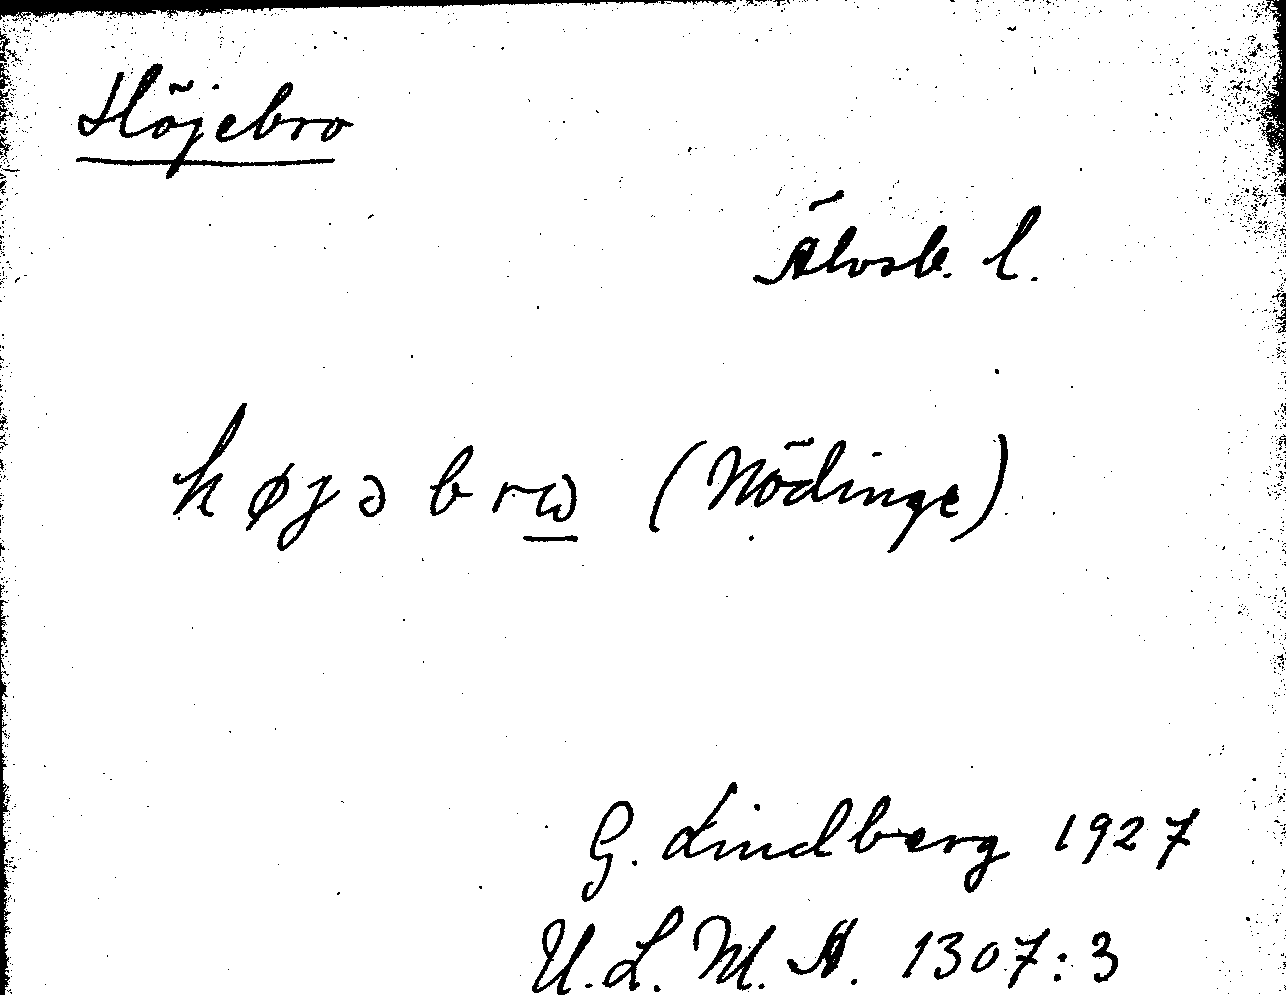 Höjebro
Älvsb. l.
højəbrω (Nödinge)
G. Lindberg 1927
U.L.M.A. 1307:3